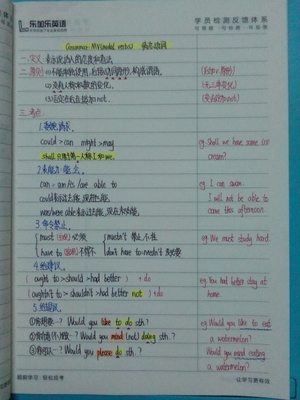 乐加乐英语
学员检测反馈体系
Grammar: MV(modal verbs) 情态动词
一. 定义: 表示说话人的态度和看法
二. 原则: ①不能单独使用,后接动词原形,构成谓语. (后do原)
②没有人称和数的变化. (无三单变化)
③否定在后直接加not. (变否加not)
三. 考点
1. 表请求.
could > can might > may eg. Shall we have some ice cream?
shall 只用于第一人称 I 和 we.
2. 表能力
can = am/is/are able to eg. I can swim.
could 表示过去能, 现在 I will not be able to
was/were able 表示过去能, 现在 come this afternoon.
3. 命令禁止.
must (主观) 必须 mustn't 禁止,不准 eg. We must study hard.
have to (客观) 不得不 don't have to = needn't 没必要
4. 给建议.
ought to > should > had better + do eg. You had better stay at
(oughtn't to > shouldn't > had better not) + do home.
5.
① Would you like to do sth.? eg. Would you like to eat
a watermelon?
② Would you mind (not) doing sth.? Would you mind eating
a watermelon?
③ Would you please do sth.?
超越学习 轻松应考
让学习更有效